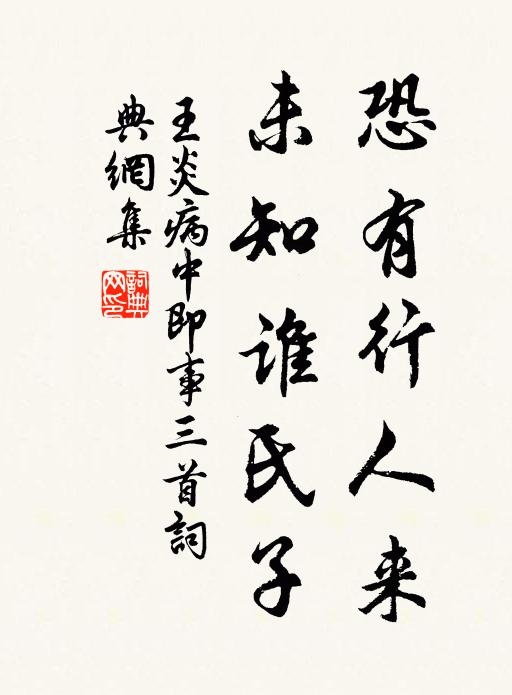 恐有行人来
未知谁氏子
王炎病中即事三首詞
典網集
詞典
网印